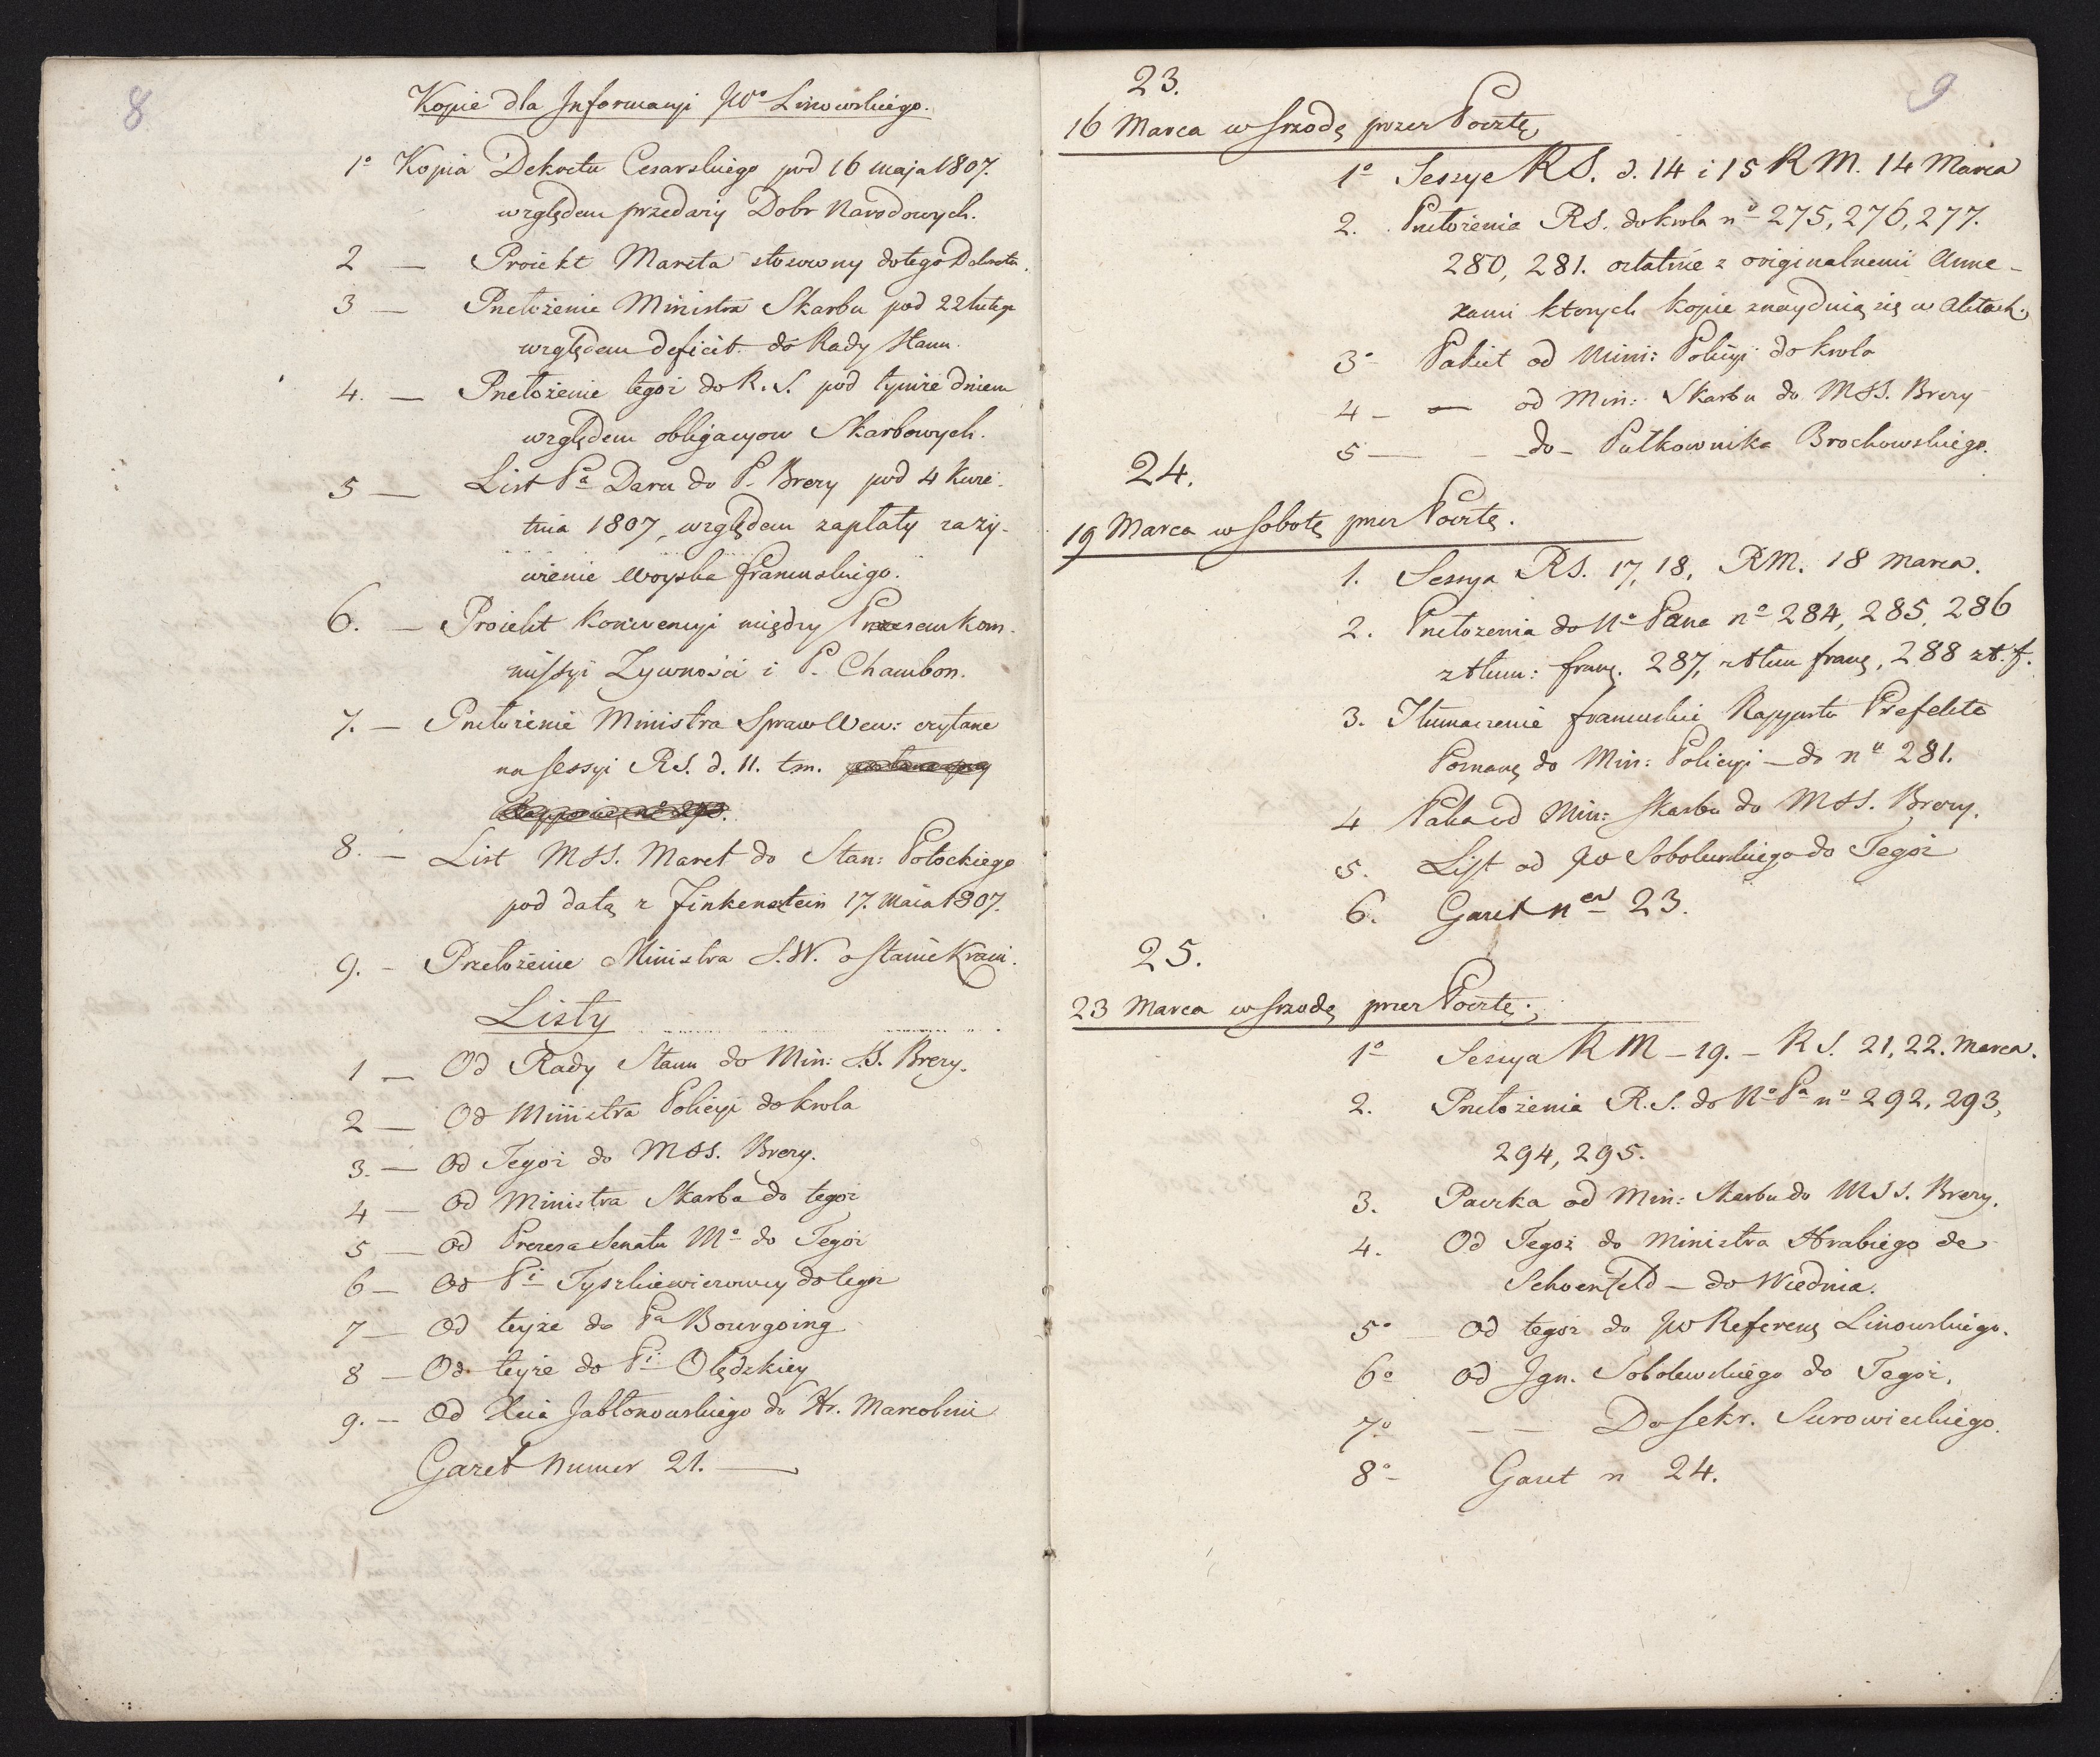 8
Kopie dla Informacyi JWo Linowskiego.
1o Kopia Dekretu Cesarskiego pod 16 maja 1807.
względem przedaży Dobr Narodowych.
2 — Proiekt Mareta stosowny do tego Dekretu.
3 — Przełożenie Ministra Skarbu pod 22 lutego
względem deficit do Rady Stanu.
4. — Przełożenie tegoż do R. S. pod tymże dniem
względem obligacyow Skarbowych.
5 — List Pa Daru do P. Brezy pod 4 Kwie-
tnia 1807, względem zapłaty za ży-
wienie woyska francuskiego.
6. — Proiekt Konwencyi między Prezesem Kom-
missyi Zywności i P. Chambon.
7. — Przełożenie Ministra Spraw Wew: czytane
na sessyi R.S. d. 11. tm.
8. — List MSS. Maret do Stan: Potockiego
pod datą z Finkenstein 17. Maia 1807.
9. — Przełożenie Ministra S.W. o stanie Kraiu.
Listy
1 — Od Rady Stanu do Min: S.S. Brezy.
2 — Od Ministra Policyi do krola
3. — Od Tegoż do MSS. Brezy.
4 — Od Ministra Skarbu do tegoż
5 — Od Prezesa Senatu Mo do Tegoż
6 — Od Pi Tyszkiewiczowey do tegoż
7 — Od teyże do Pa Bourgoing
8 — Od teyże do Pi Olędzkiey
9. — Od Xcia Jabłonowskiego do Hr. Marcolini
Gazet Numer 21. —
9
23.
16 Marca w Srzodę przez Pocztę
1o Sessye RS. d. 14 i 15 RM. 14 Marca
2. Przełożenia RS. do krola no 275, 276, 277.
280, 281. ostatnie z originalnemi Anne-
xami ktorych kopie znayduią się w Aktach.
3o Pakiet od Mini: Policyi do krola
4 — — od Min: Skarbu do MSS. Brezy
5 — — do — Pułkownika Brochowskiego.
24.
19 Marca w Sobotę przez Pocztę.
1. Sessya RS. 17, 18, RM. 18 Marca.
2. Przełozenia do No Pana no 284, 285, 286
z tłum: franc. 287, z tłum franc, 288 z t. f.
3. Tłumaczenie francuskie Rapportu Prefekta
Poznanę do Min: Policyi — do no 281.
4 Paka od Min: Skarbu do MSS. Brezy.
5. List od JW Sobolewskiego do Tegoż
6. Gazet ner 23.
25.
23 Marca w Srzodę przez Pocztę.
1o Sessya RM — 19. — RS. 21, 22. Marca.
2. Przełożenia R.S. do No Pa no 292, 293,
294, 295.
3. Paczka od Min: Skarbu do MSS. Brezy.
4. Od Tegoż do Ministra Hrabiego de
Schoenfeld — do Wiednia.
5o Od tegoż do JW Referenc Linowskiego.
6o Od Ign. Sobolewskiego do Tegoż.
7o — — Do Sekr. Surowieckiego.
8o — Gazet n 24.